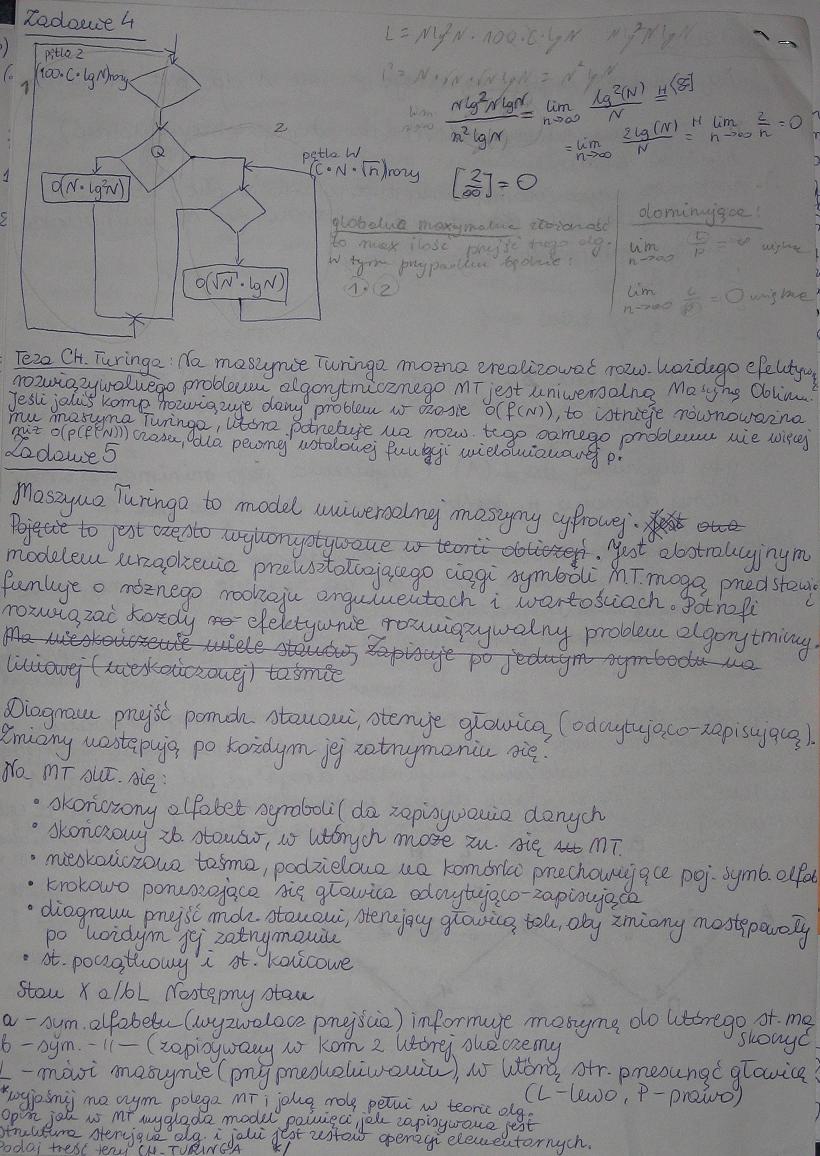 Zadanie 4
pętla Z
(100·C·lgN) razy
Q
O(N·lg²N)
2
pętla W
(C·N·√n) razy
O(√N·lgN)
L = Nlg²N·100·C·lgN
Nlg²N lgN / n² lgN = lim n→∞ lg²(N)/N H= [∞/∞]
= lim n→∞ 2lg(N)/N H= lim n→∞ 2/n = 0
[2/∞] = 0
globalna maxymalna złożoność
to max ilość przejść tego alg.
w tym przypadku będzie:
1·2
dominujące:
lim n→∞ L/P = ∞ większe
lim n→∞ L/P = 0 większe
Teza CH. Turinga: Na maszynie Turinga można zrealizować rozw. każdego efektywnie
rozwiązywalnego problemu algorytmicznego MT jest uniwersalną Maszyną Oblicz.
Jeśli jakiś komp rozwiązuje dany problem w czasie O(f(N)), to istnieje równoważna
mu maszyna Turinga, która potrzebuje na rozw. tego samego problemu nie więcej
niż O(p(f(N))) czasu, dla pewnej ustalonej funkcji wielomianowej p.
Zadanie 5
Maszyna Turinga to model uniwersalnej maszyny cyfrowej. Jest ona
Pojęcie to jest często wykorzystywane w teorii obliczeń. Jest abstrakcyjnym
modelem urządzenia przekształcającego ciągi symboli MT. mogą przedstawić
funkcje o różnego rodzaju argumentach i wartościach. Potrafi
rozwiązać każdy ro efektywnie rozwiązywalny problem algorytmiczny.
Ma nieskończenie wiele stanów, Zapisuje po jednym symbolu na
liniowej (nieskończonej) taśmie
Diagram przejść pomdz. stanami, steruje głowicą (odczytująco-zapisującą).
Zmiany następują po każdym jej zatrzymaniu się.
Na MT skł. się:
• skończony alfabet symboli (do zapisywania danych
• skończony zb. stanów, w których może zn. się MT.
• nieskończona taśma, podzielona na komórki przechowujące poj. symb. alfab
• krokowo poruszająca się głowica odczytująco-zapisująca
• diagram przejść mdz. stanami, sterujący głowicą tak, aby zmiany następowały
po każdym jej zatrzymaniu
• st. początkowy i st. końcowe
Stan X a/bL Następny stan
a - sym. alfabetu (wyzwalacz przejścia) informuje maszynę do którego st. ma
skoczyć
b - sym. -II- (zapisywany w kom z której skaczemy
L - mówi maszynie (przy przeskakiwaniu), w którą str. przesunąć głowicę
(L - lewo, P - prawo)
*wyjaśnij na czym polega MT i jaką rolę pełni w teorii alg.
Opisz jak w MT wygląda model pamięci, jak zapisywana jest
struktura sterująca alg. i jaki jest zestaw operacji elementarnych.
Podaj treść tezy CH-TURINGA */